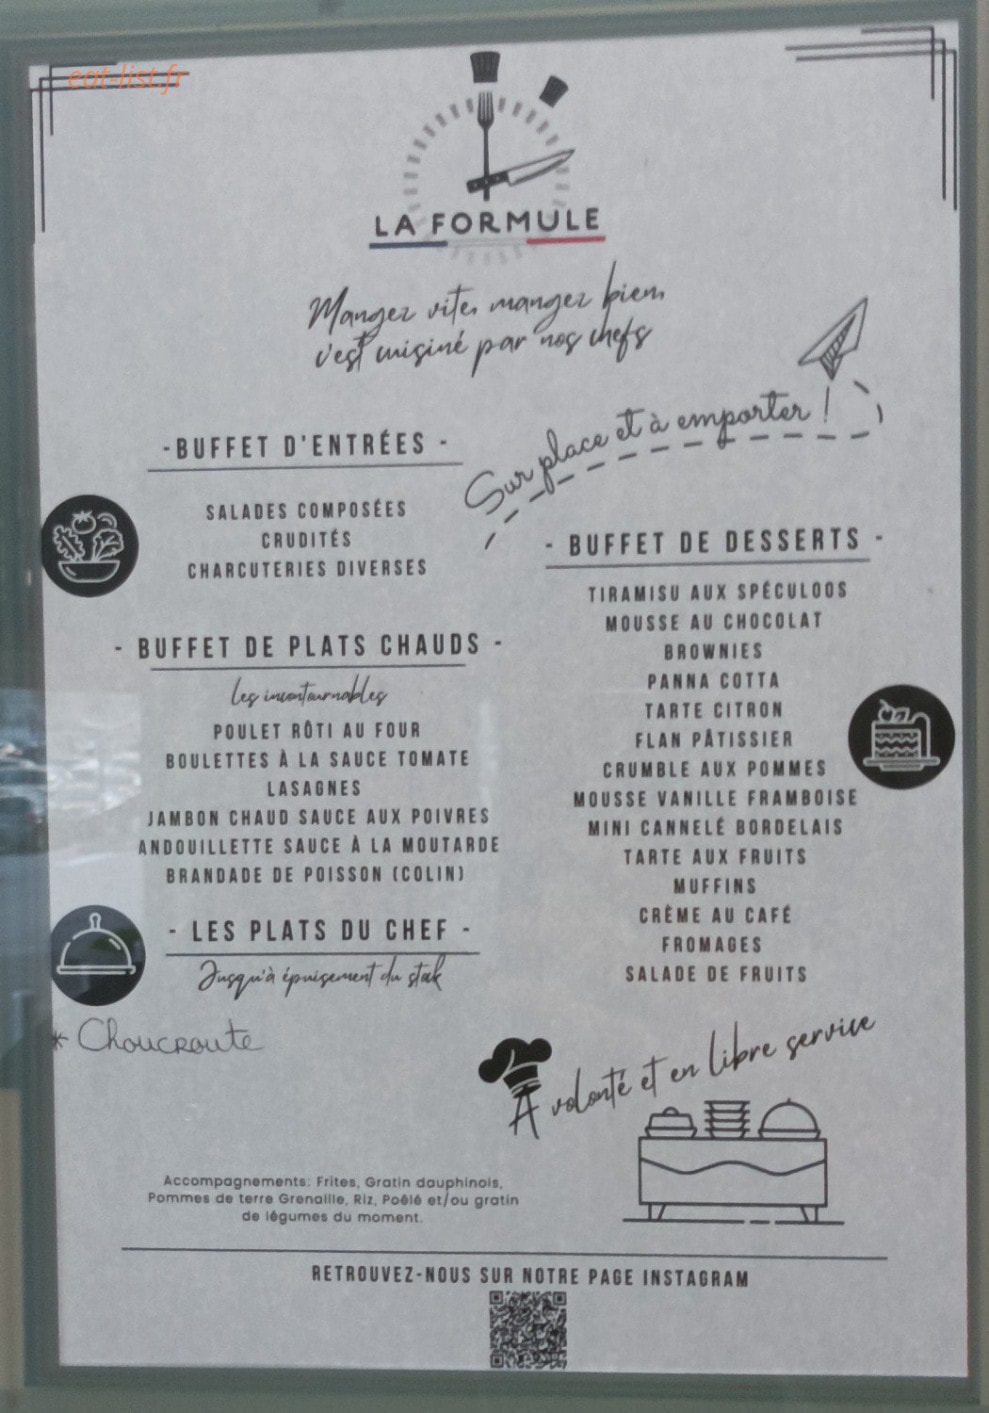 eat-list.fr
LA FORMULE
Mangez vite, mangez bien,
c'est cuisiné par nos chefs
Sur place et à emporter !
-BUFFET D'ENTRÉES -
SALADES COMPOSÉES
CRUDITÉS
CHARCUTERIES DIVERSES
- BUFFET DE PLATS CHAUDS -
Les incontournables
POULET RÔTI AU FOUR
BOULETTES À LA SAUCE TOMATE
LASAGNES
JAMBON CHAUD SAUCE AUX POIVRES
ANDOUILLETTE SAUCE À LA MOUTARDE
BRANDADE DE POISSON (COLIN)
- LES PLATS DU CHEF -
Jusqu'à épuisement du stock
* Choucroute
Accompagnements: Frites, Gratin dauphinois,
Pommes de terre Grenaille, Riz, Poêlé et/ou gratin
de légumes du moment.
- BUFFET DE DESSERTS -
TIRAMISU AUX SPÉCULOOS
MOUSSE AU CHOCOLAT
BROWNIES
PANNA COTTA
TARTE CITRON
FLAN PÂTISSIER
CRUMBLE AUX POMMES
MOUSSE VANILLE FRAMBOISE
MINI CANNELÉ BORDELAIS
TARTE AUX FRUITS
MUFFINS
CRÈME AU CAFÉ
FROMAGES
SALADE DE FRUITS
A volonté et en libre service
RETROUVEZ-NOUS SUR NOTRE PAGE INSTAGRAM